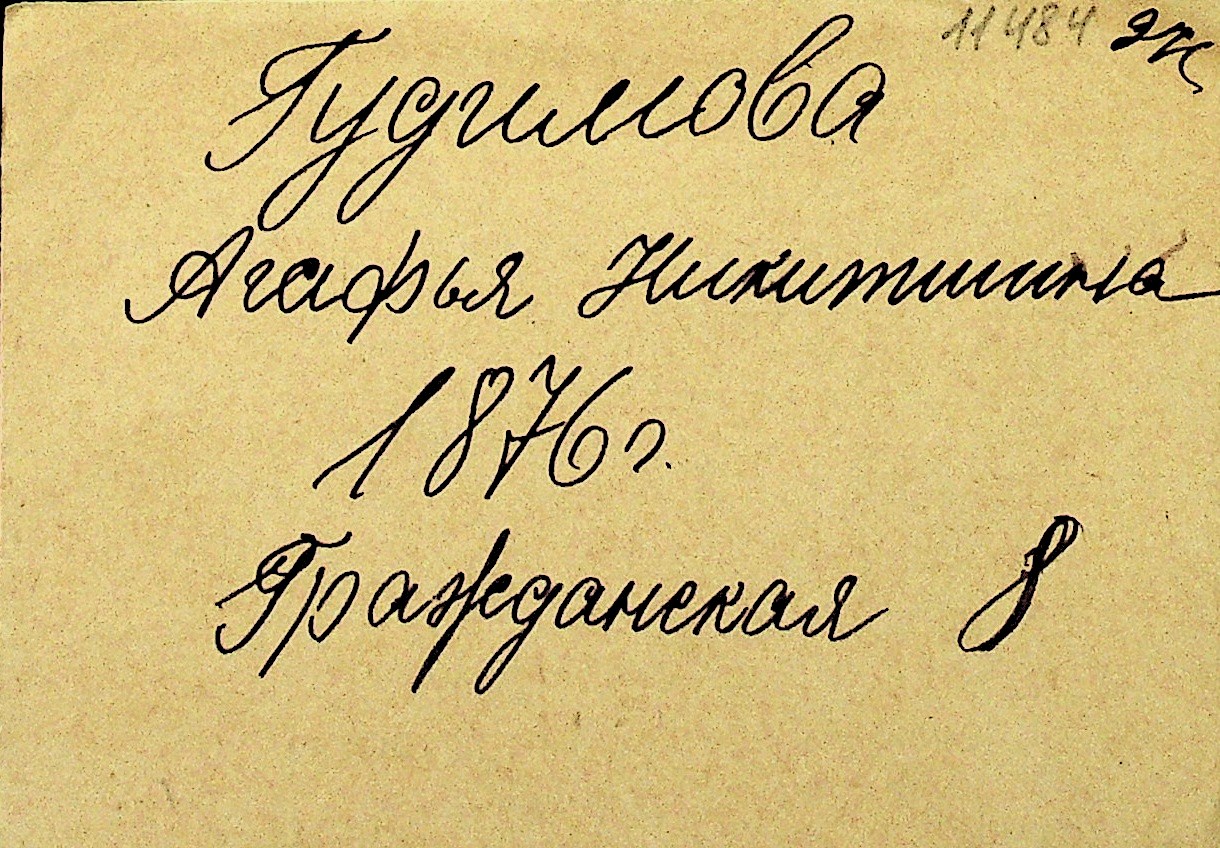 11484
Гудимова
Агафья Никитишна
1876 г.
Гражданская 8